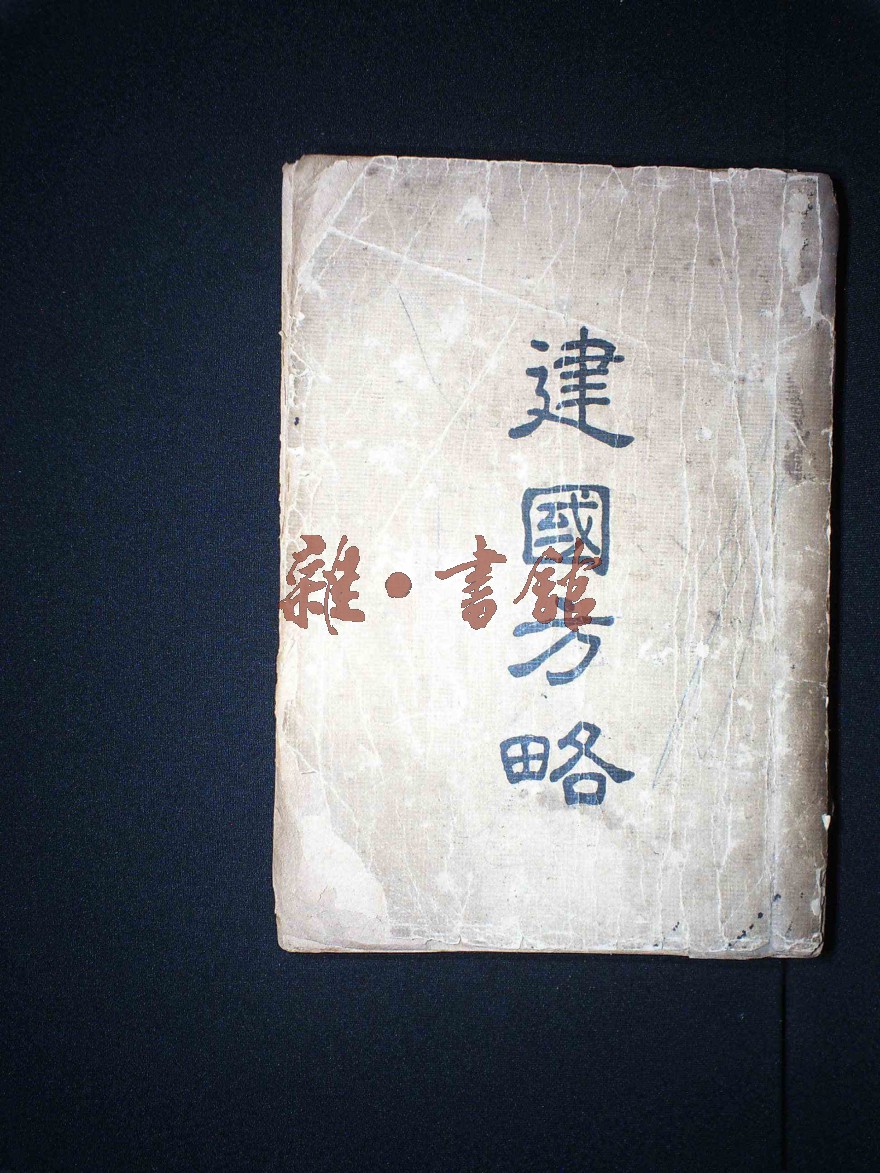 建國方略
雜·書館